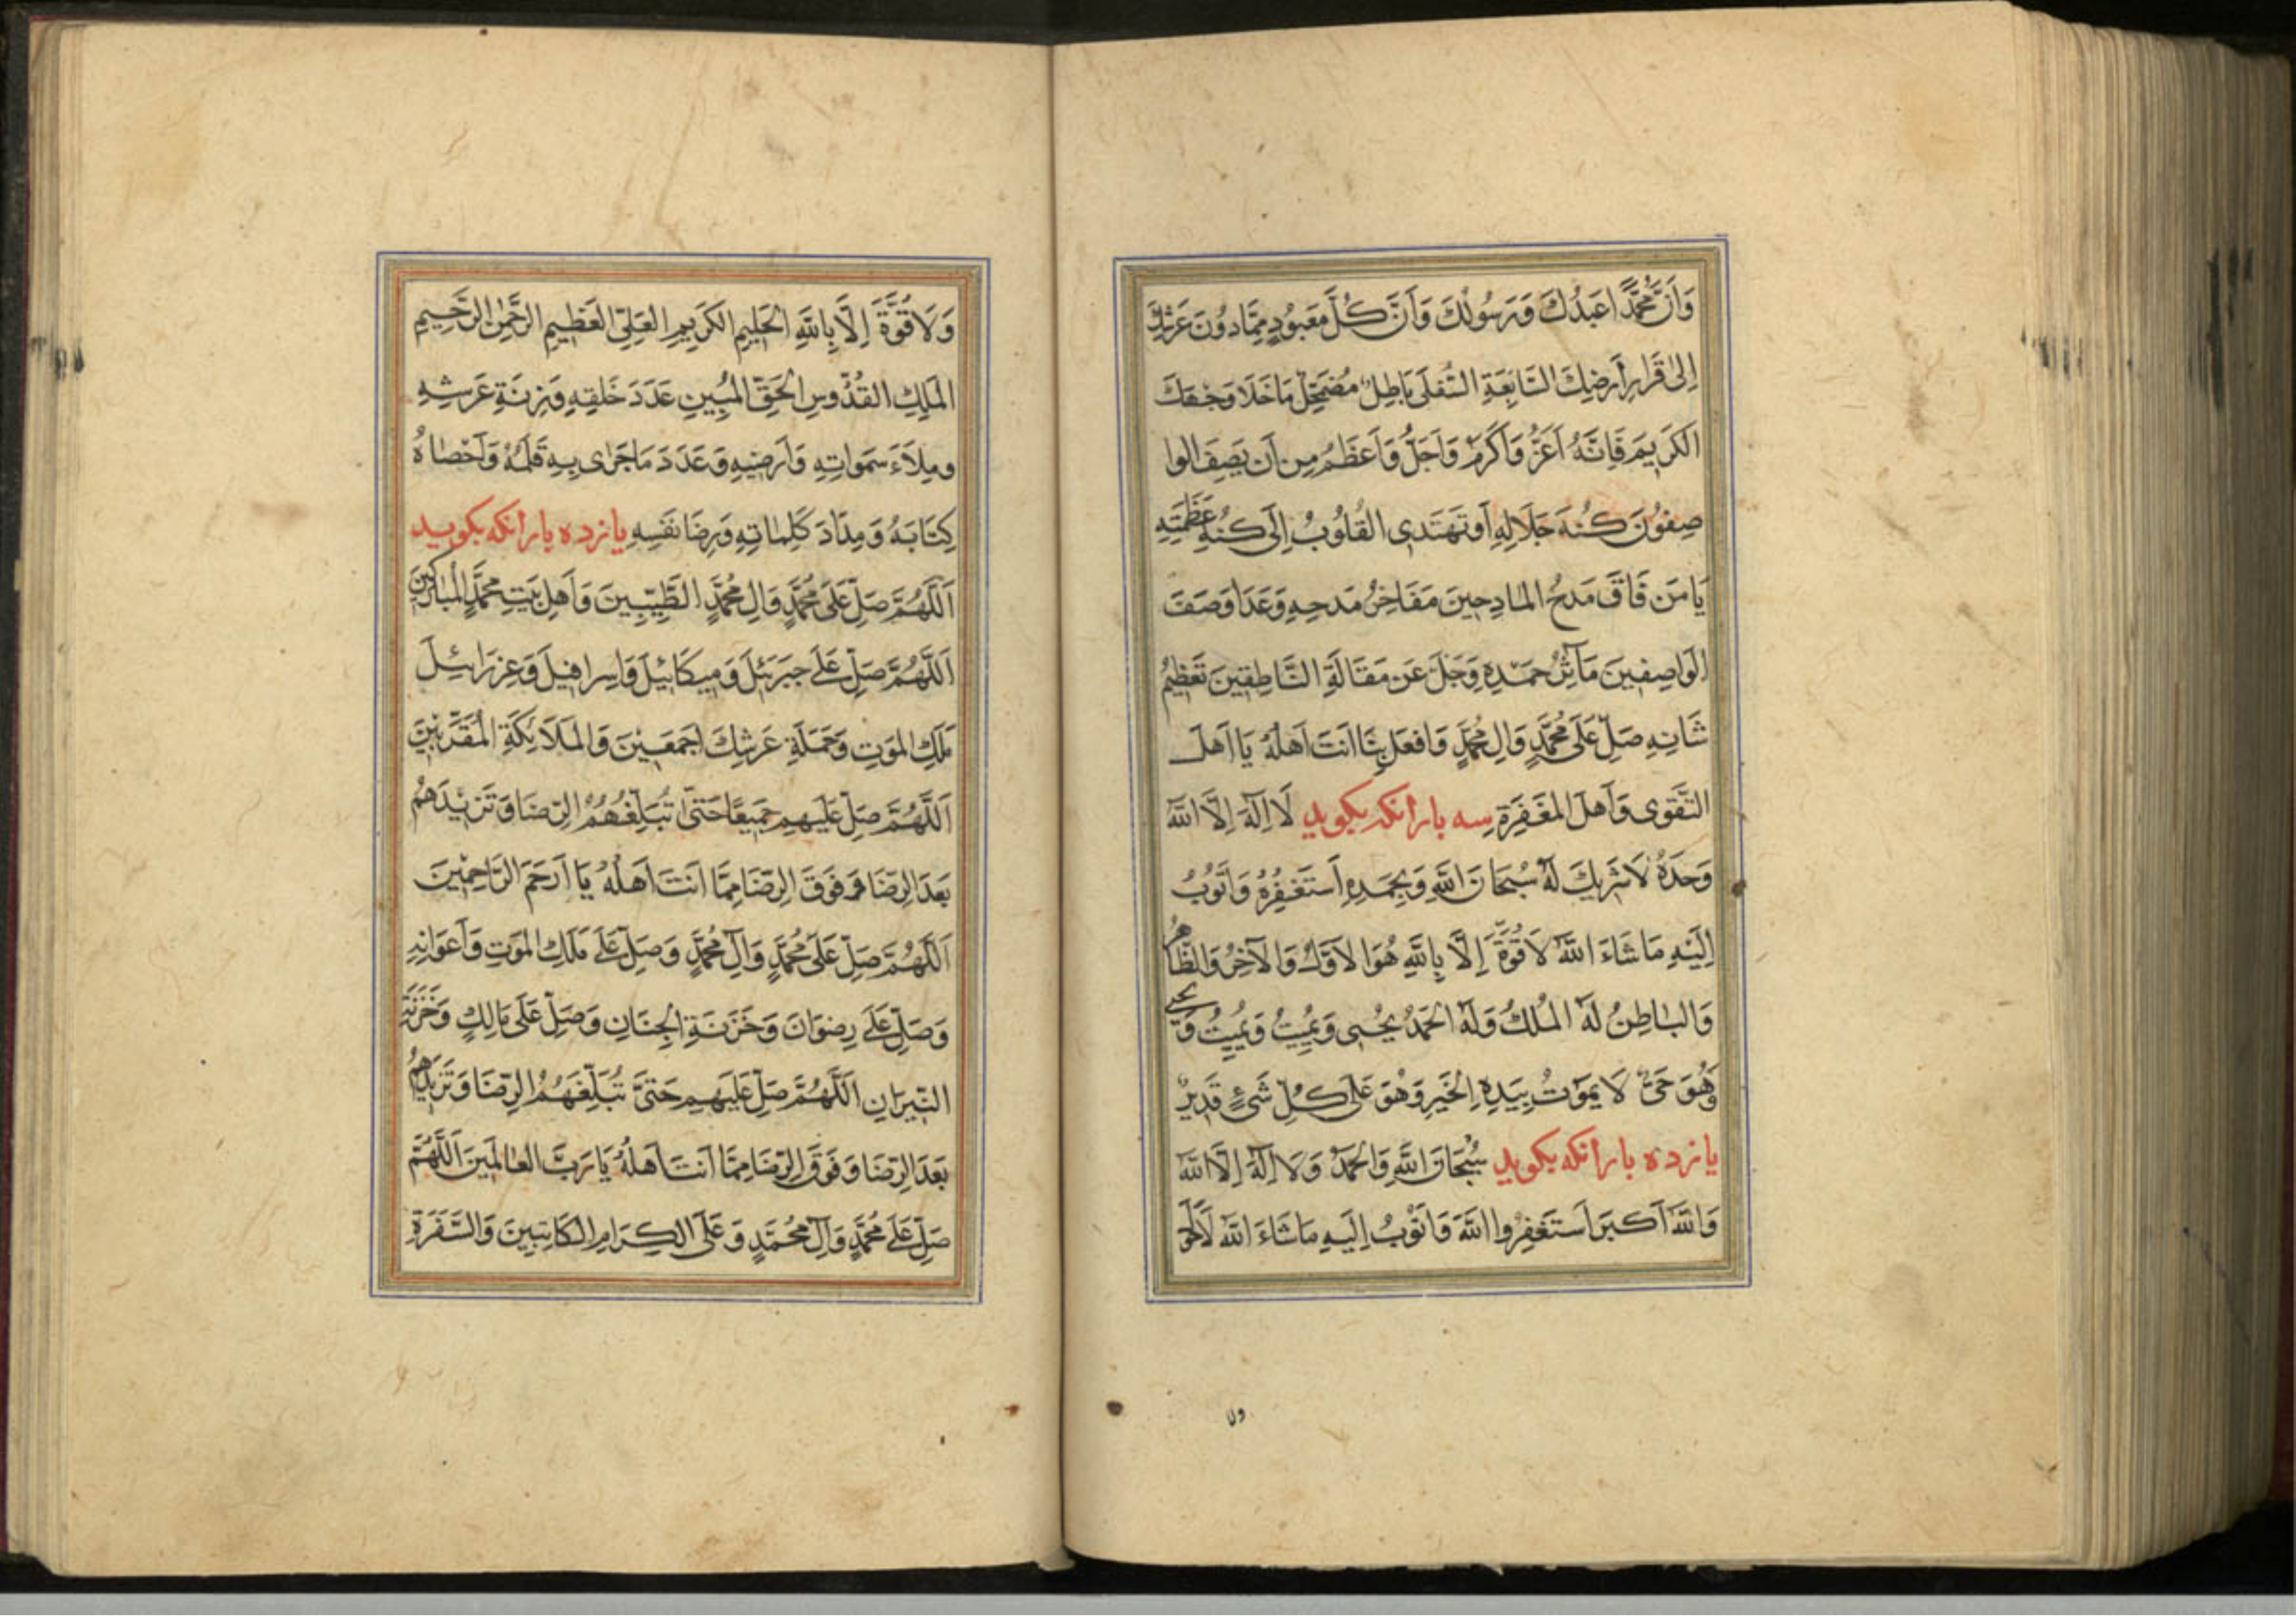 وَاَنَّ مُحَمَّدًا عَبدُكَ وَرَسُولُكَ وَاَنَّ كُلَّ مَعبُودٍ مِمَّا دُونَ عَرشِكَ
اِلىٰ قَرَارِ اَرضِكَ السَّابِعَةِ السُّفلىٰ بَاطِلٌ مُضمَحِلٌّ مَا خَلَا وَجهَكَ
الكَرِيمَ فَاِنَّهُ اَعَزُّ وَاَكرَمُ وَاَجَلُّ وَاَعظَمُ مِن اَن يَصِفَ الوا
صِفُونَ كُنهَ جَلَالِهِ اَو تَهتَدِى القُلُوبُ اِلىٰ كُنهِ عَظَمَتِهِ
يَا مَن فَاقَ مَدحُ المَادِحِينَ مَفَاخِرُ مَدحِهِ وَعَدَا وَصفَ
الوَاصِفِينَ مَآثِرُ حَمدِهِ وَجَلَّ عَن مَقَالَةِ النَّاطِقِينَ تَعظِيمُ
شَانِهِ صَلِّ عَلىٰ مُحَمَّدٍ وَالِ مُحَمَّدٍ وَافعَل بِنَا اَنتَ اَهلُهُ يَا اَهلَ
التَّقوى وَاَهلَ المَغفِرَةِ سه بار انكه بكويد لَا اِلٰهَ اِلَّا اللّٰهُ
وَحدَهُ لَا شَرِيكَ لَهُ سُبحَانَ اللّٰهِ وَبِحَمدِهِ اَستَغفِرُهُ وَاَتُوبُ
اِلَيهِ مَا شَاءَ اللّٰهُ لَا قُوَّةَ اِلَّا بِاللّٰهِ هُوَ الاَوَّلُ وَالآخِرُ وَالظَّاهِرُ
وَالبَاطِنُ لَهُ المُلكُ وَلَهُ الحَمدُ يُحيِى وَيُمِيتُ وَيُمِيتُ وَيُحيِى
وَهُوَ حَىٌّ لَا يَمُوتُ بِيَدِهِ الخَيرِ وَهُوَ عَلىٰ كُلِّ شَىءٍ قَدِيرٌ
يازده بار انكه بكويد سُبحَانَ اللّٰهِ وَالحَمدُ وَلَا اِلٰهَ اِلَّا اللّٰهُ
وَاللّٰهُ اَكبَرُ اَستَغفِرُوا اللّٰهَ وَاَتُوبُ اِلَيهِ مَا شَاءَ اللّٰهُ لَا حَولَ
ول
وَلَا قُوَّةَ اِلَّا بِاللّٰهِ الحَلِيمِ الكَرِيمِ العَلِىِّ العَظِيمِ الرَّحمٰنِ الرَّحِيمِ
المَلِكِ القُدُّوسِ الحَقِّ المُبِينِ عَدَدَ خَلقِهِ وَزِنَةِ عَرشِهِ
وَمِلأَءَ سَمَواتِهِ وَاَرضِيهِ وَعَدَدَ مَا جَرٰى بِهِ قَلَمُهُ وَاَحصَاهُ
كِتَابَهُ وَمِدَادَ كَلِمَاتِهِ وَرِضَا نَفسِهِ يازده بار انكه بكويد
اَللّٰهُمَّ صَلِّ عَلىٰ مُحَمَّدٍ وَالِ مُحَمَّدٍ الطَّيِّبِينَ وَاَهلِ بَيتِ مُحَمَّدٍ المُبَارَكِينَ
اَللّٰهُمَّ صَلِّ عَلىٰ جَبرَئِلَ وَمِيكَائِيلَ وَاِسرَافِيلَ وَعِزرَائِلَ
مَلَكِ المَوتِ وَحَمَلَةِ عَرشِكَ اَجمَعِينَ وَالمَلَائِكَةِ المُقَرَّبِينَ
اَللّٰهُمَّ صَلِّ عَلَيهِم جَمِيعًا حَتّىٰ تُبَلِّغُهُمُ الرِّضَا وَتَزِيدَهُم
بَعدَ الرِّضَا وَفَوقَ الرِّضَا مِمَّا اَنتَ اَهلُهُ يَا اَرحَمَ الرَّاحِمِينَ
اَللّٰهُمَّ صَلِّ عَلىٰ مُحَمَّدٍ وَآلِ مُحَمَّدٍ وَصَلِّ عَلىٰ مَلَكِ المَوتِ وَاَعوَانِهِ
وَصَلِّ عَلىٰ رِضوَانَ وَخَزَنَةِ الجِنَانِ وَصَلِّ عَلىٰ مَالِكٍ وَخَزَنَةِ
النِّيرَانِ اَللّٰهُمَّ صَلِّ عَلَيهِم حَتّىٰ تُبَلِّغَهُمُ الرِّضَا وَتَزِيدَهُم
بَعدَ الرِّضَا وَفَوقَ الرِّضَا مِمَّا اَنتَ اَهلُهُ يَا رَبَّ العَالَمِينَ اَللّٰهُمَّ
صَلِّ عَلىٰ مُحَمَّدٍ وَآلِ مُحَمَّدٍ وَعَلَى الكِرَامِ الكَاتِبِينَ وَالسَّفَرَةِ